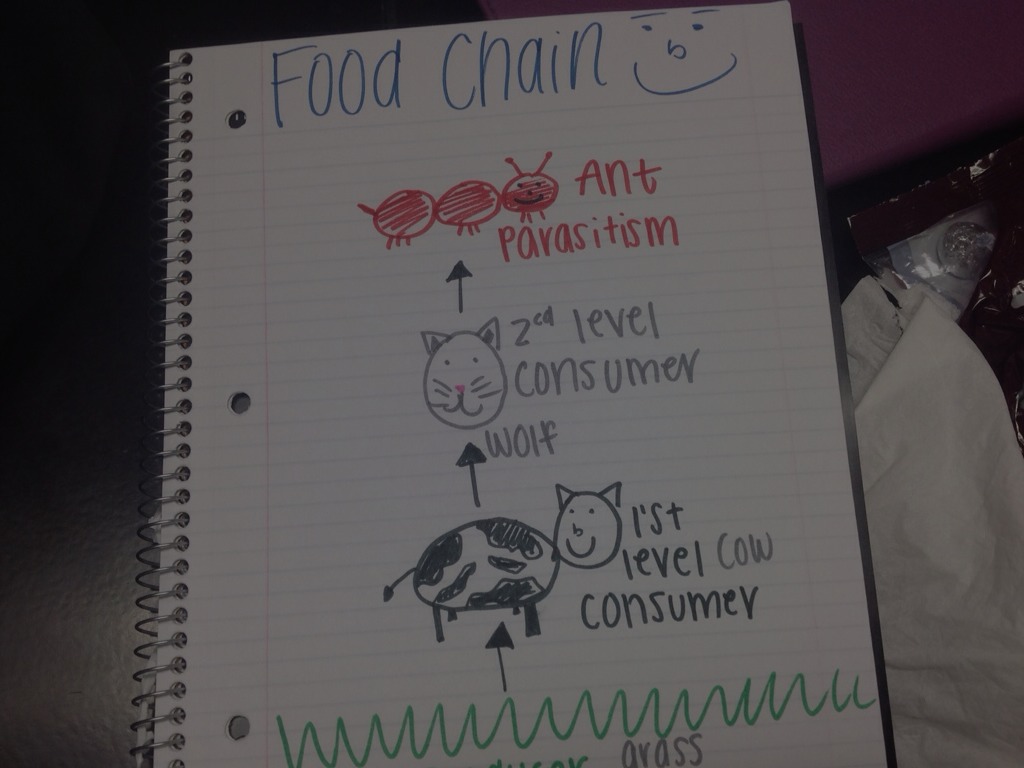 Food Chain
Ant
parasitism
2cd level
consumer
wolf
1'st
level cow
consumer
grass